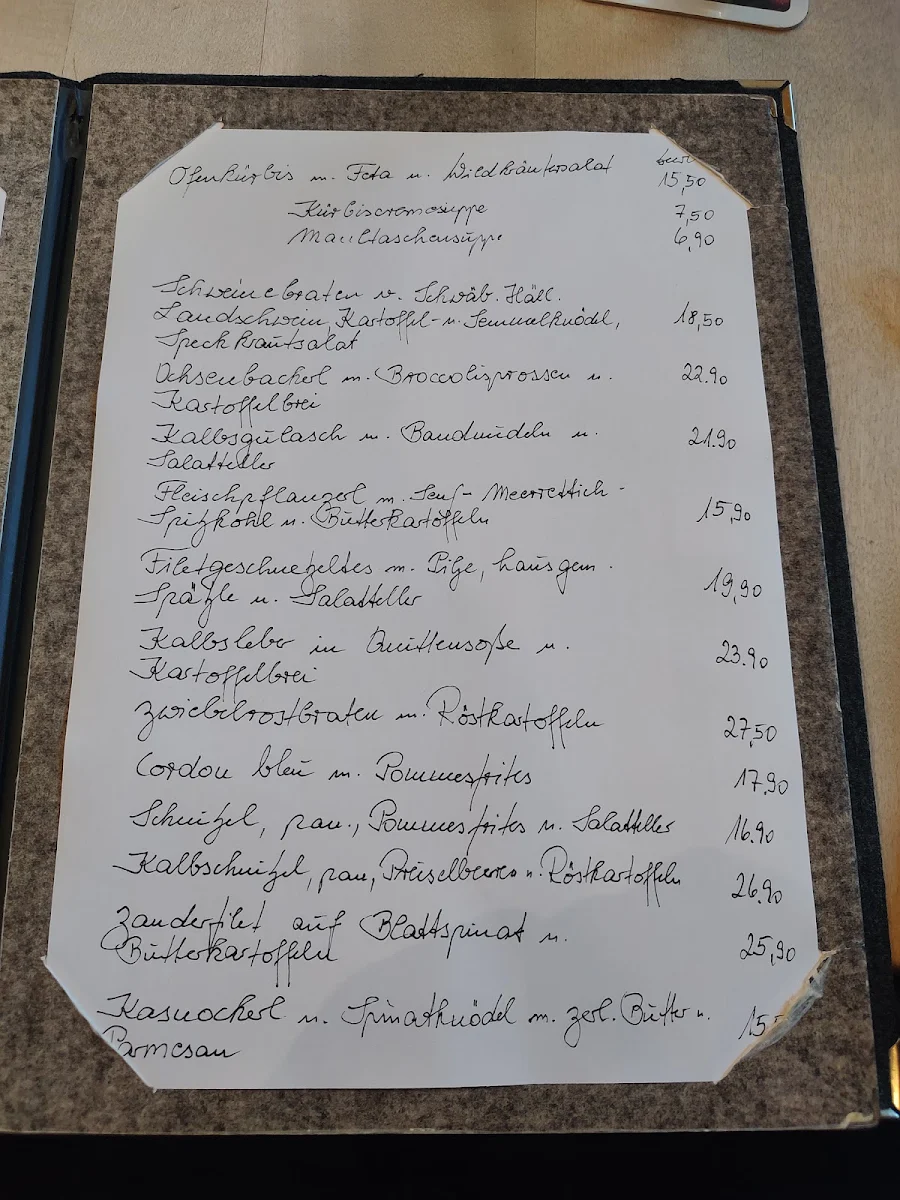 Ofenkürbis m. Feta u. Wildkräutersalat 15,50
Kürbiscremesuppe 7,50
Maultaschensuppe 6,90
Schweinebraten v. Schwäb. Häll.
Landschwein, Kartoffel- u. Semmelknödel, 18,50
Speckkrautsalat
Ochsenbackerl m. Broccolisprossen u. 22.90
Kartoffelbrei
Kalbsgulasch m. Bandnudeln u. 21.90
Salatteller
Fleischpflanzerl m. Senf- Meerrettich-
Spitzkohl u. Butterkartoffeln 15,90
Filetgeschnetzeltes m. Pilze, hausgem.
Spätzle u. Salatteller 19,90
Kalbsleber in Quittensoße u. 23.90
Kartoffelbrei
Zwiebelrostbraten m. Röstkartoffeln 27,50
Cordon bleu m. Pommesfrites 17.90
Schnitzel, pan., Pommesfrites u. Salatteller 16.90
Kalbschnitzel, pan, Preiselbeeren u. Röstkartoffeln 26.90
Zanderfilet auf Blattspinat u.
Butterkartoffeln 25,90
Kasnockerl u. Spinatknödel m. zerl. Butter u. 15
Parmesan